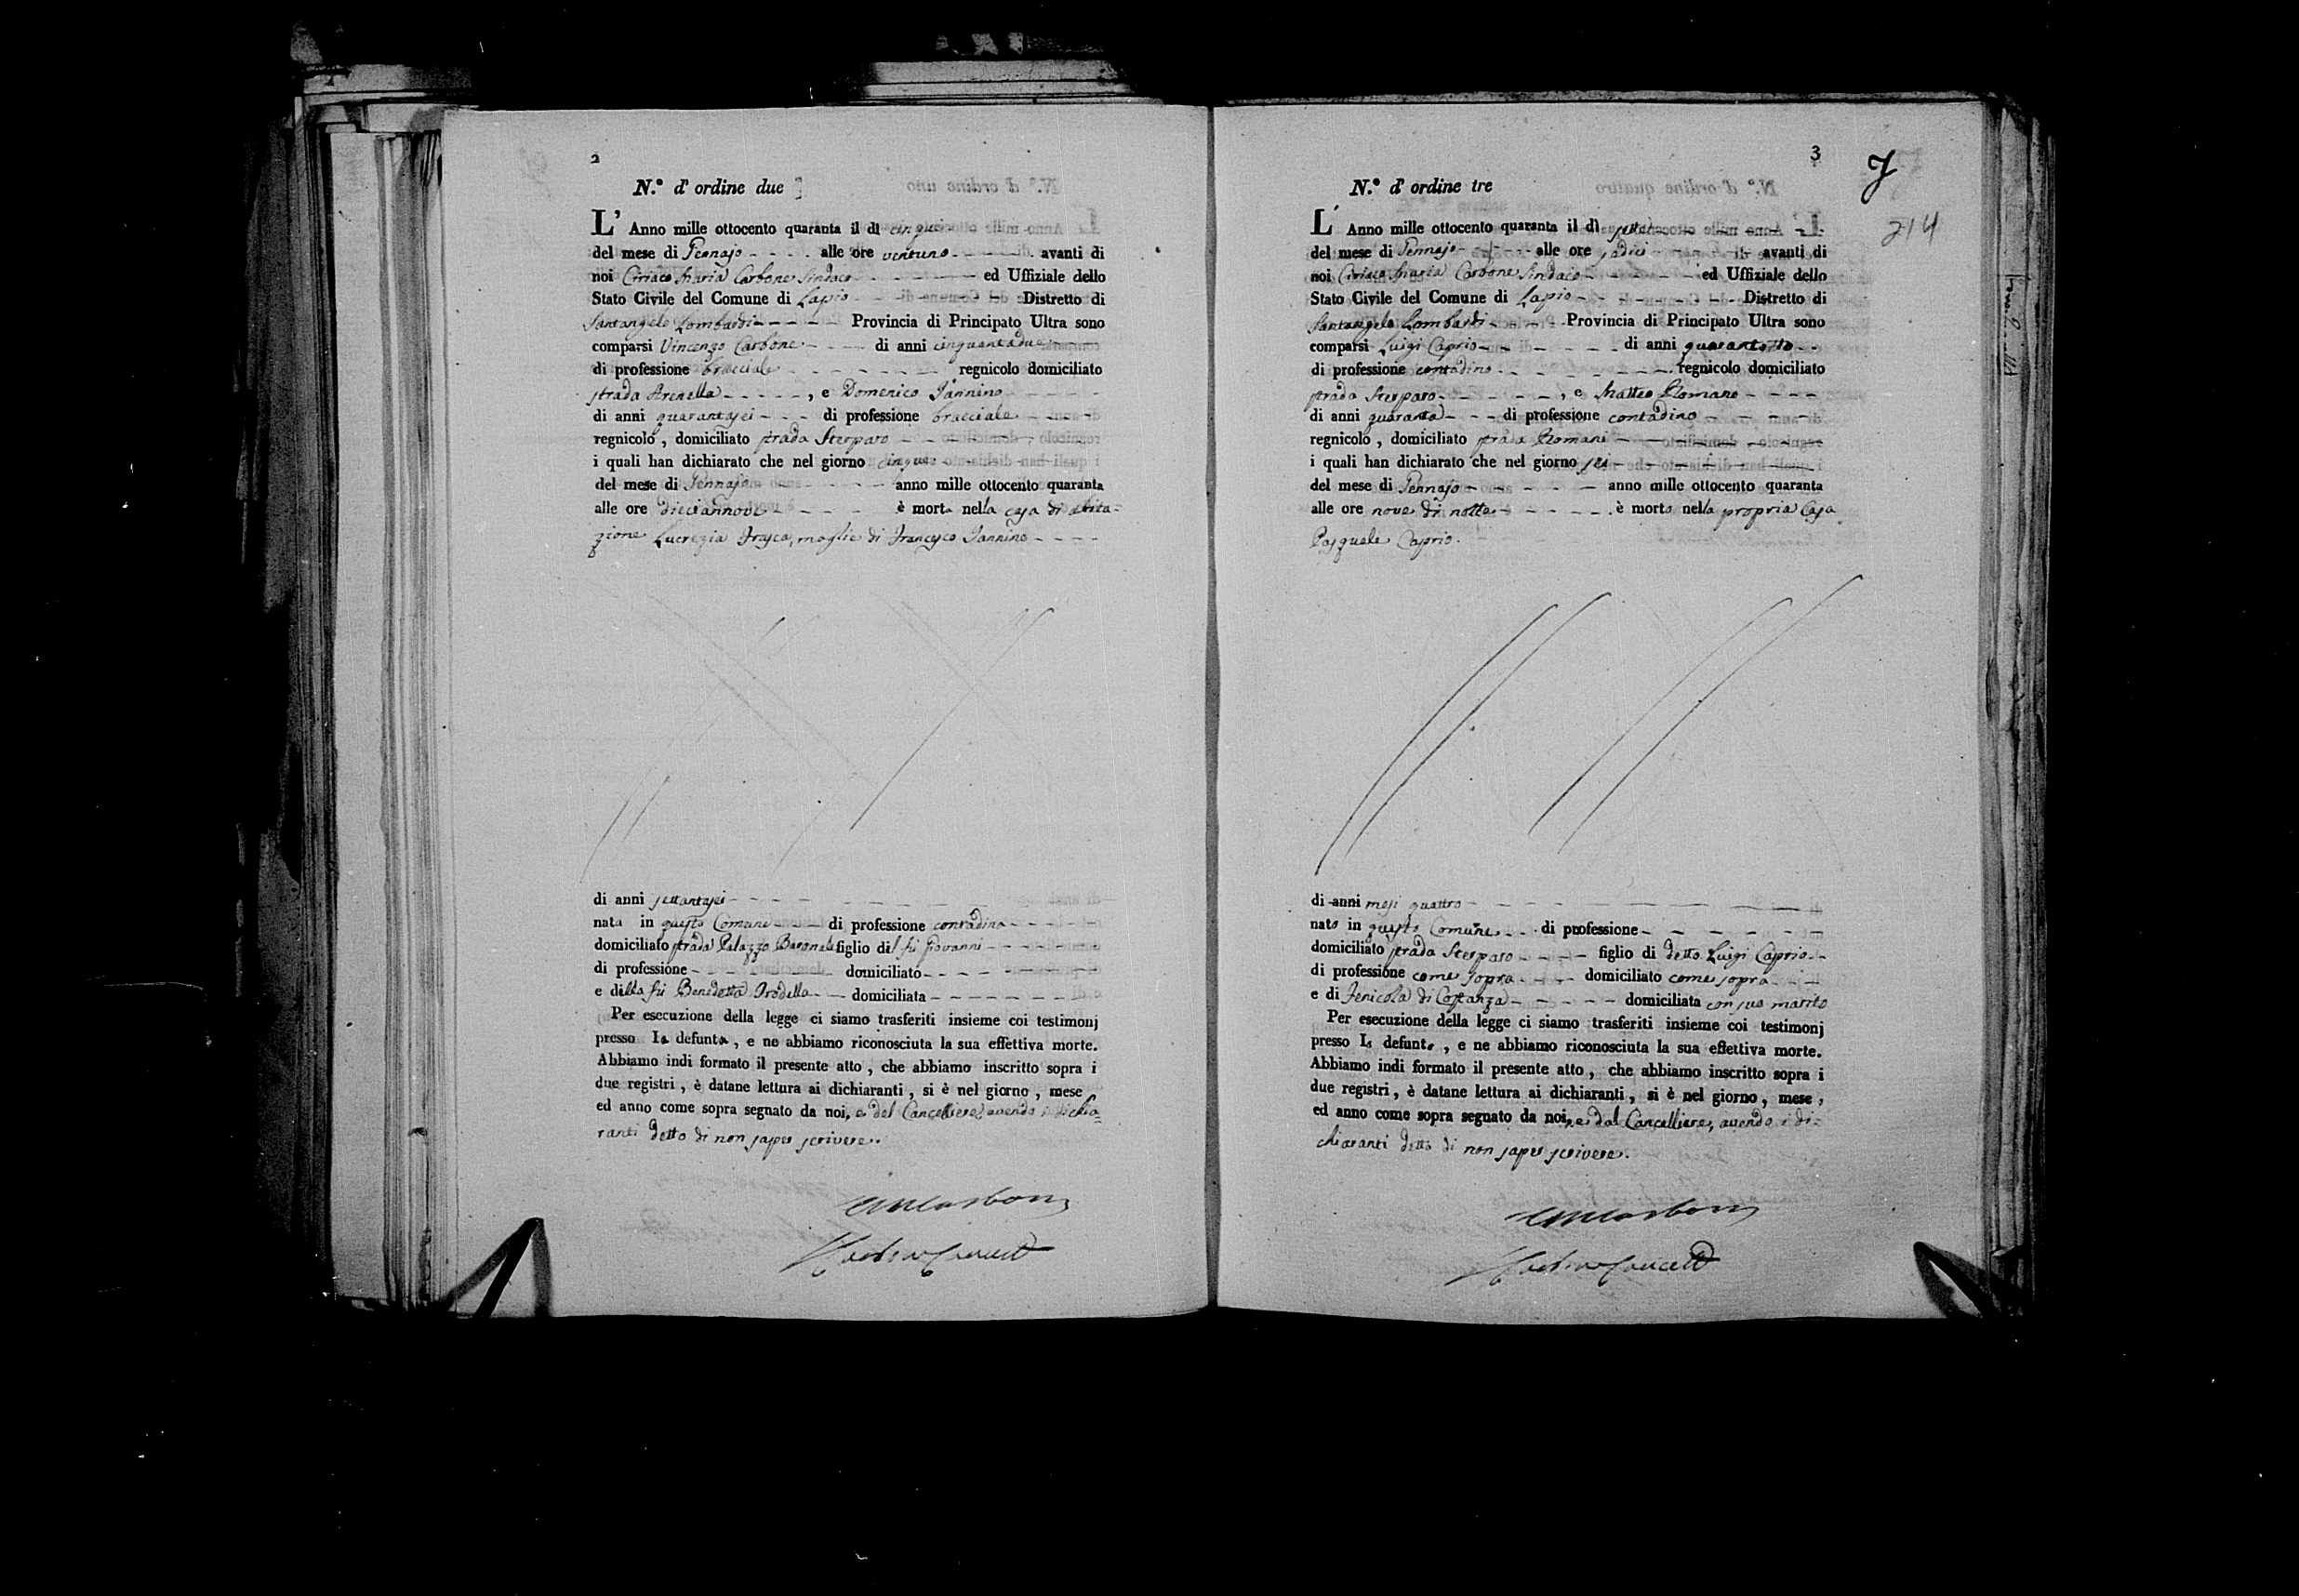 2
N.° d' ordine due
L' Anno mille ottocento quaranta il dì cinque
del mese di Gennajo alle ore ventuno avanti di
noi Ciriaco Maria Carbone Sindaco ed Uffiziale dello
Stato Civile del Comune di Lapio Distretto di
Santangelo Lombardi Provincia di Principato Ultra sono
comparsi Vincenzo Carbone di anni cinquantadue
di professione bracciale regnicolo domiciliato
strada Arenella , e Domenico Iannino
di anni quarantasei di professione bracciale
regnicolo , domiciliato strada Sterparo
i quali han dichiarato che nel giorno cinque
del mese di Gennajo anno mille ottocento quaranta
alle ore diciannove è morta nella casa di abita=
zione Lucrezia Frysca, moglie di Francesco Iannino
di anni settantasei
nata in questo Comune di professione contadina
domiciliato strada Palazzo Baronale figlio del fù Giovanni
di professione domiciliato
e della fù Benedetta domiciliata
Per esecuzione della legge ci siamo trasferiti insieme coi testimonj
presso la defunta , e ne abbiamo riconosciuta la sua effettiva morte.
Abbiamo indi formato il presente atto , che abbiamo inscritto sopra i
due registri , è datane lettura ai dichiaranti , si è nel giorno , mese
ed anno come sopra segnato da noi, e dal Cancelliere, avendo i dichia=
ranti detto di non saper scrivere.
CMCarbone
3
7
214
N.° d' ordine tre
L' Anno mille ottocento quaranta il dì sette
del mese di Gennajo alle ore sedici avanti di
noi Ciriaco Maria Carbone Sindaco ed Uffiziale dello
Stato Civile del Comune di Lapio Distretto di
Santangelo Lombardi Provincia di Principato Ultra sono
comparsi Luigi Caprio di anni quarantotto
di professione contadino regnicolo domiciliato
strada Sterparo , e Matteo Romano
di anni quaranta di professione contadino
regnicolo , domiciliato strada Romani
i quali han dichiarato che nel giorno sei
del mese di Gennajo anno mille ottocento quaranta
alle ore nove di notte è morto nella propria Casa
Pasquale Caprio.
di anni mesi quattro
nato in questo Comune di professione
domiciliato strada Sterparo figlio di detto Luigi Caprio
di professione come sopra domiciliato come sopra
e di Fenicola di Costanza domiciliata con suo marito
Per esecuzione della legge ci siamo trasferiti insieme coi testimonj
presso lo defunto , e ne abbiamo riconosciuta la sua effettiva morte.
Abbiamo indi formato il presente atto , che abbiamo inscritto sopra i
due registri , è datane lettura ai dichiaranti , si è nel giorno , mese ,
ed anno come sopra segnato da noi, e dal Cancelliere, avendo i di=
chiaranti detto di non saper scrivere.
CMCarbone